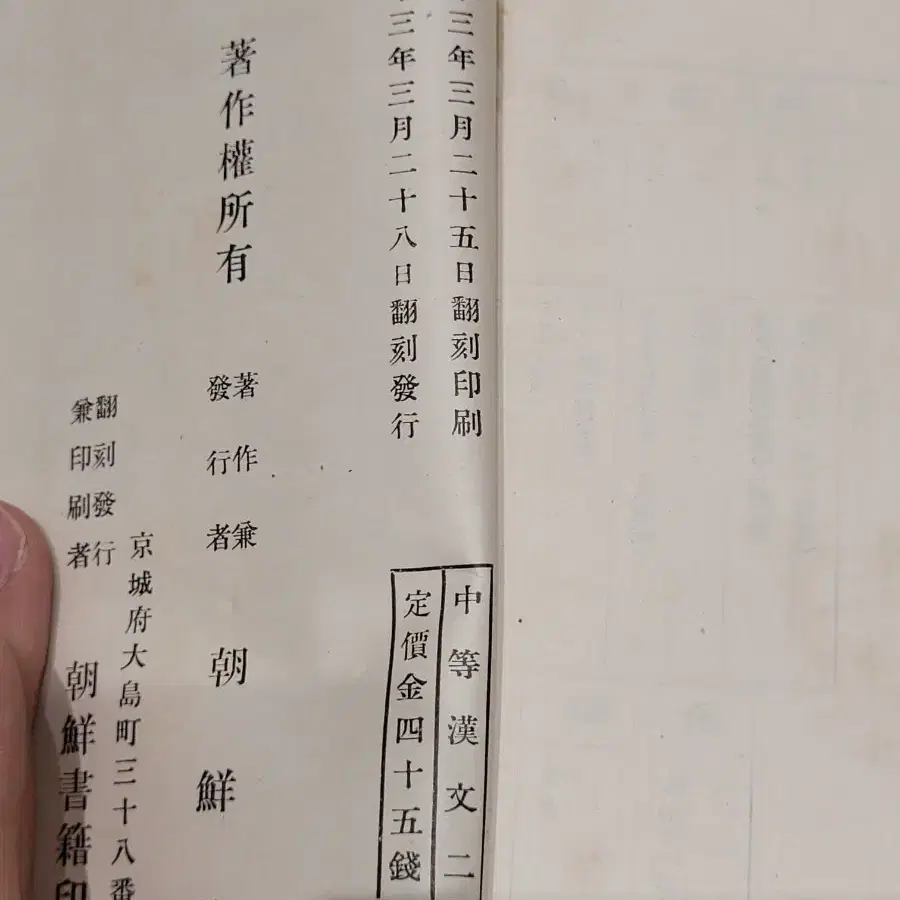 三年三月二十五日翻刻印刷
三年三月二十八日翻刻發行
中等漢文二
定價金四十五錢
著作權所有
著作兼
發行者
朝鮮
京城府大島町三十八番
翻刻發行
兼印刷者
朝鮮書籍印